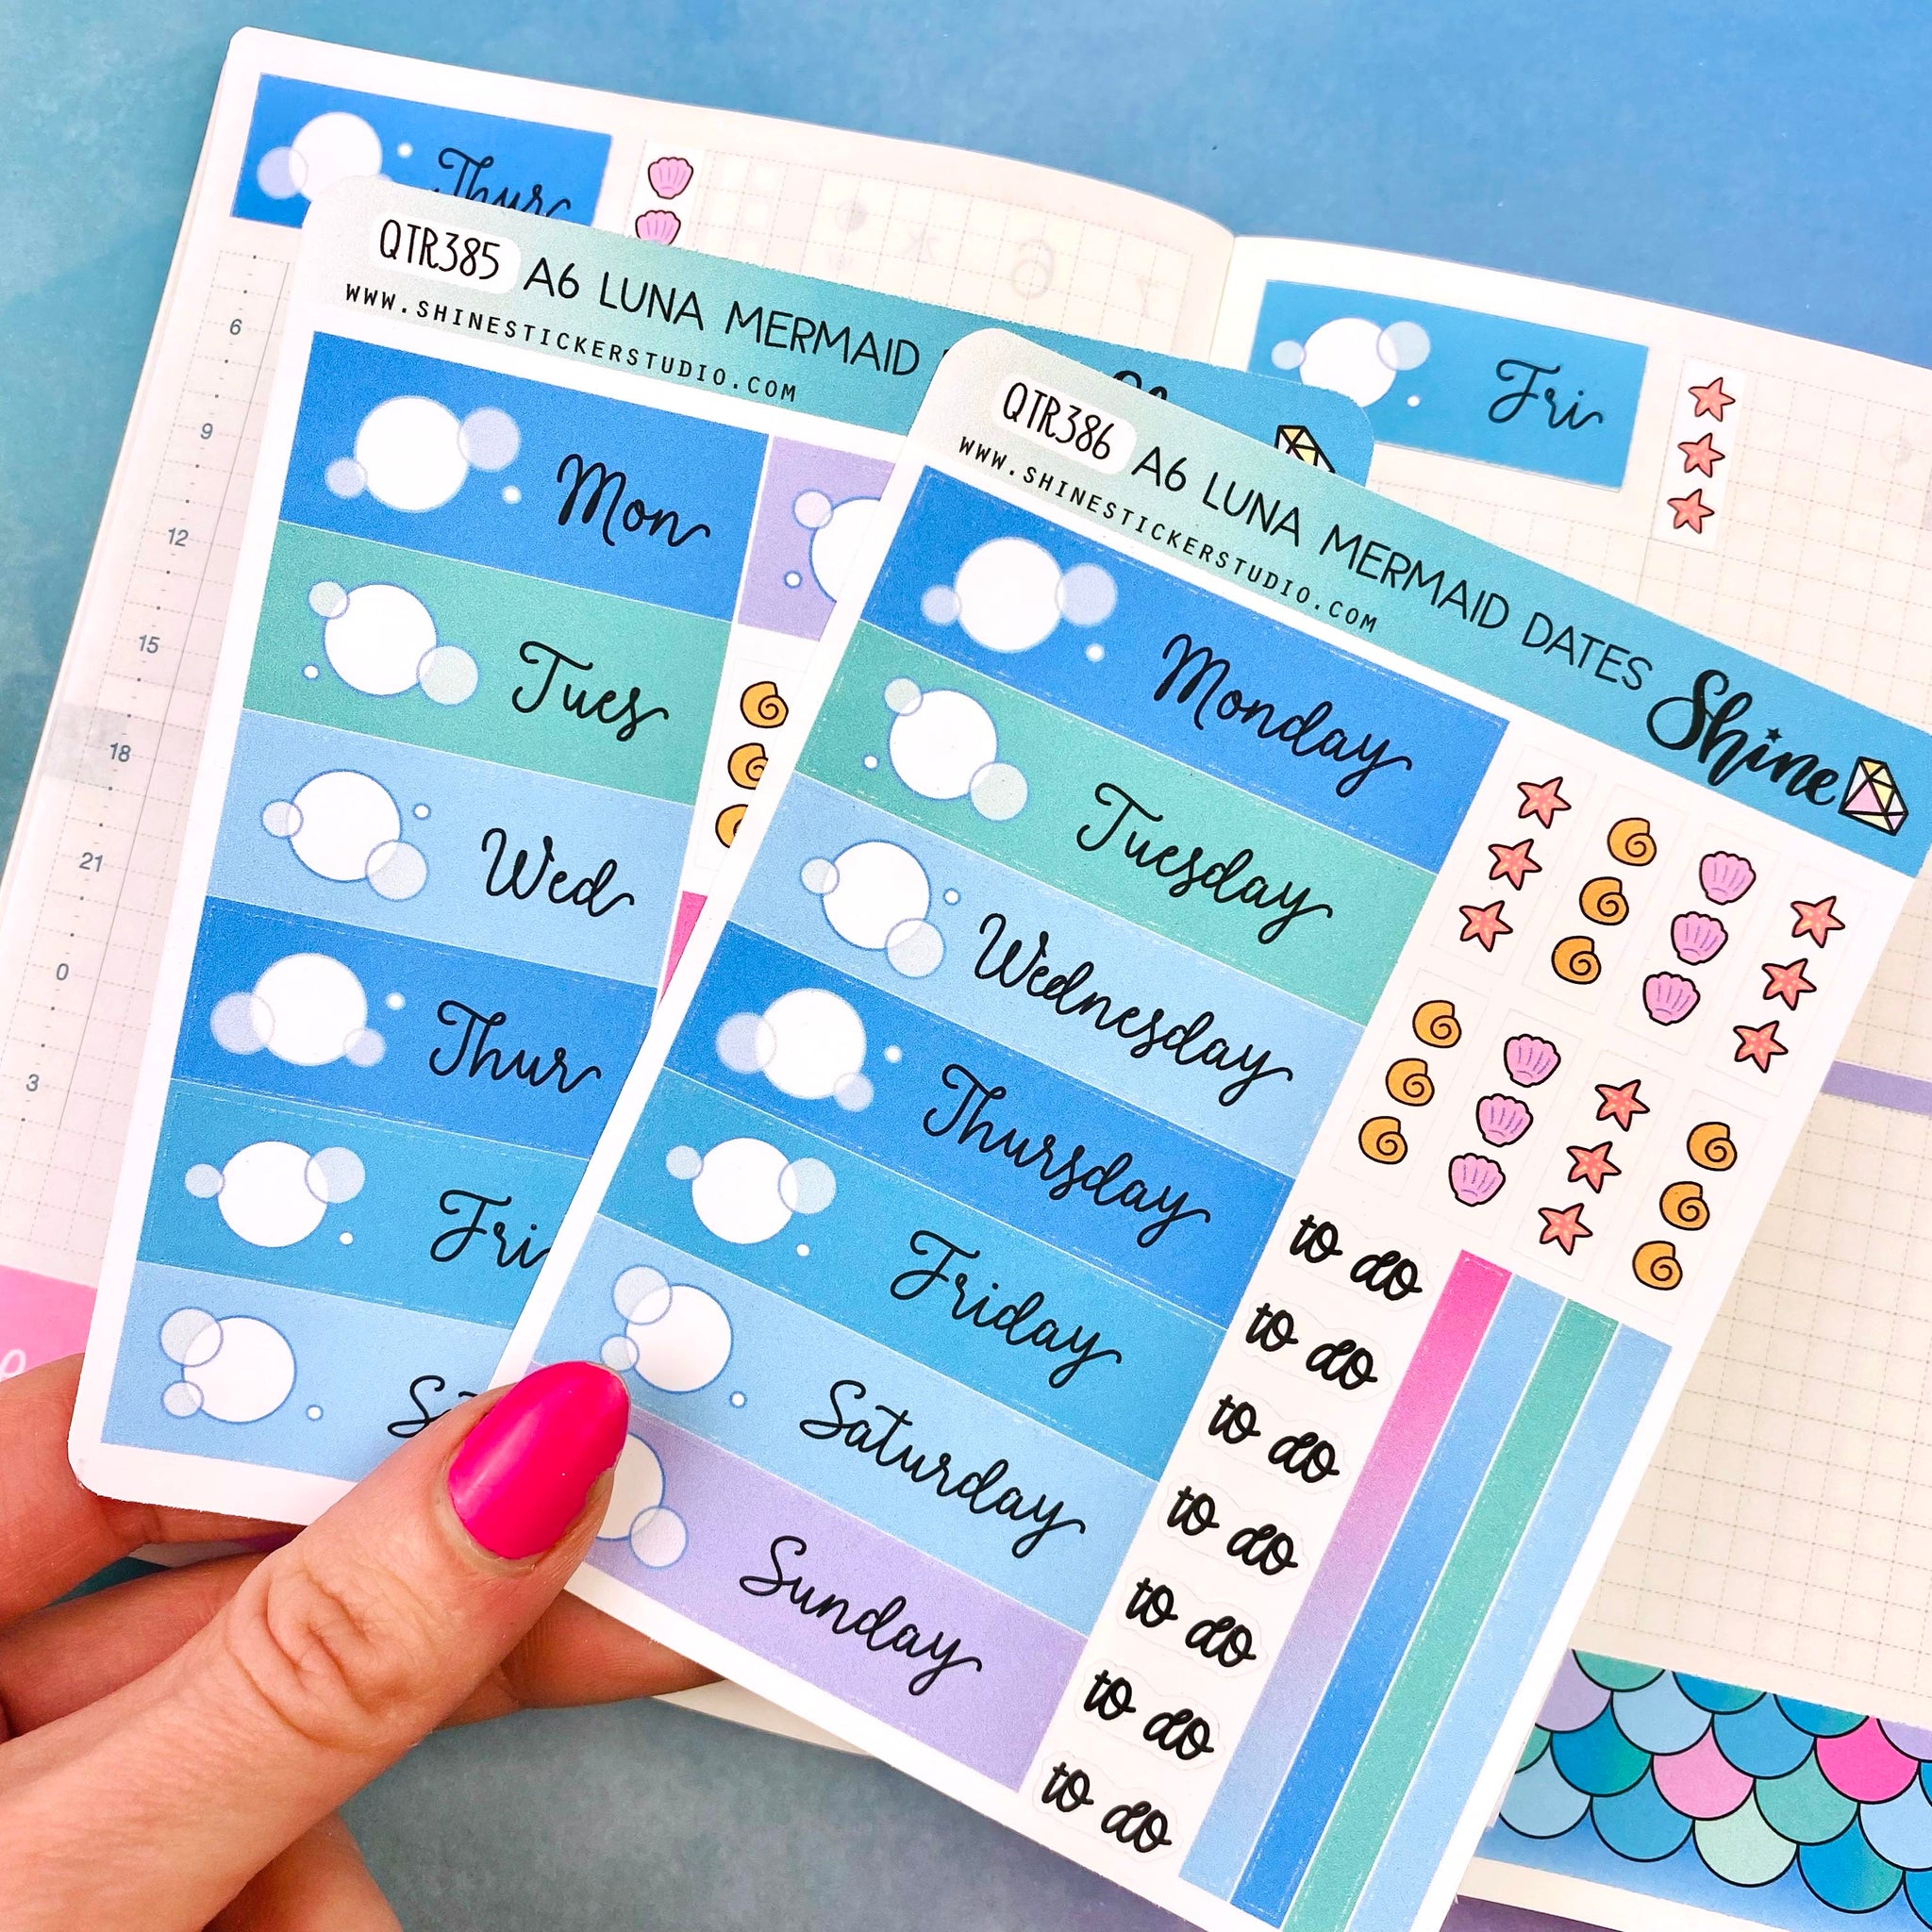 Thur
Fri
6
9
12
15
18
21
0
3
QTR385 A6 LUNA MERMAID
WWW.SHINESTICKERSTUDIO.COM
Mon
Tues
Wed
Thur
Fri
QTR386 A6 LUNA MERMAID DATES Shine
WWW.SHINESTICKERSTUDIO.COM
Monday
Tuesday
Wednesday
Thursday
Friday
Saturday
Sunday
to do
to do
to do
to do
to do
to do
to do